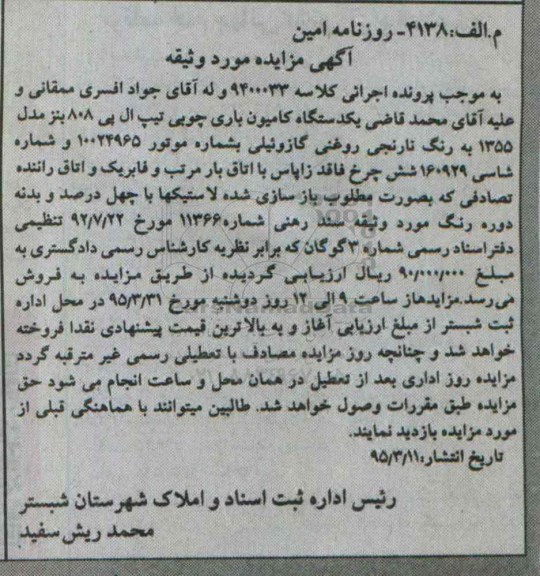 م.الف:۴۱۳۸- روزنامه امین
آگهی مزایده مورد وثیقه
به موجب پرونده اجرائی کلاسه ۹۴۰۰۰۳۳ و له آقای جواد افسری ممقانی و
علیه آقای محمد قاضی یکدستگاه کامیون باری چوبی تیپ ال پی ۸۰۸ بنز مدل
۱۳۵۵ به رنگ نارنجی روغنی گازوئیلی بشماره موتور ۱۰۰۲۴۹۶۵ و شماره
شاسی ۱۶۰۹۲۹ شش چرخ فاقد زاپاس با اتاق بار مرتب و فابریک و اتاق راننده
تصادفی که بصورت مطلوب باز سازی شده لاستیکها با چهل درصد و بدنه
دوره رنگ مورد وثیقه سند رهنی شماره ۱۱۳۶۶ مورخ ۹۲/۷/۲۲ تنظیمی
دفتر اسناد رسمی شماره ۳ گوگان که برابر نظریه کارشناس رسمی دادگستری به
مبلغ ۹۰/۰۰۰/۰۰۰ ریال ارزیابی گردیده از طریق مزایده به فروش
می‌رسد.مزایده‌از ساعت ۹ الی ۱۲ روز دوشنبه مورخ ۹۵/۳/۳۱ در محل اداره
ثبت شبستر از مبلغ ارزیابی آغاز و به بالاترین قیمت پیشنهادی نقدا فروخته
خواهد شد و چنانچه روز مزایده مصادف با تعطیلی رسمی غیر مترقبه گردد
مزایده روز اداری بعد از تعطیل در همان محل و ساعت انجام می شود حق
مزایده طبق مقررات وصول خواهد شد. طالبین میتوانند با هماهنگی قبلی از
مورد مزایده بازدید نمایند.
تاریخ انتشار:۹۵/۳/۱۱
رئیس اداره ثبت اسناد و املاک شهرستان شبستر
محمد ریش سفید